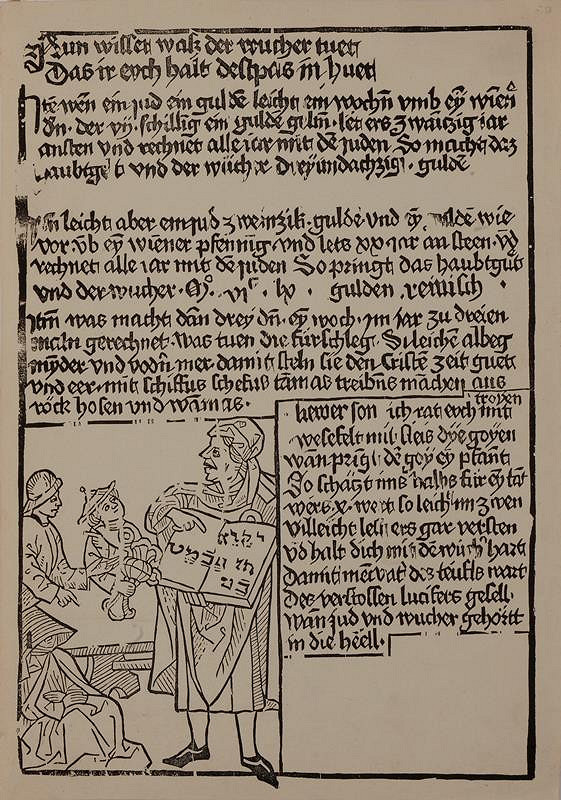 Nun wissett wasz der wucher tuet
Das ir eych halt destpas in huet
wen ein jud ein guldē leicht ein wochn̄ vmb eȳ
dn̄. der vij. schilling ein guldē leīt ers zwainzig iar
ansten vnd rechnet alle iar mit dē juden So macht daz
vnd der wuchr dreyundachzig. guldē
leicht aber ein jud zweinzik. guldē vnd wie
vor vb eȳ wiener pfennig. vnd lets xx iar an steen. vn̄d
rechnet alle iar mit dē juden So pringt das haubtgut
vnd der wucher. vi lx. gulden reinisch
Itm̄ was macht dan drey dn̄. eȳ woch. im jar zu dreien
maln gerechnet. was tuen die fürschleg. Si leichē albeg
mynder vnd vodn̄ mer. damit steln sie den Cristē zeit guet
vnd eer. mit schiffus schefus tām as treibn̄s machen aus
röck hosen vnd wāmas.
troyen
liewer son ich rat eych mit
wesefelt mit fleis dye goyen
wan pringt dē goy eȳ pfant
So schazt ims halbs für eȳ tāt
wers x. wert so leich im zwen
villeicht lest ers gar versten
vn̄d halt dich mit dē wuchr hart
Damit mērvat des teufls wart
Des verstossen lucifers gesell.
wan jud vnd wucher gehörtt
in die hëell.